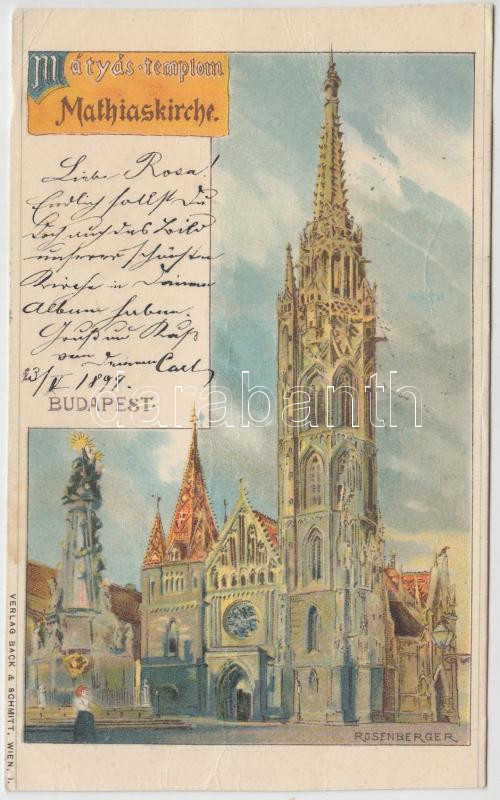 Mátyás-templom
Mathiaskirche.
Liebe Rosa!
Endlich sollst Du
doch auch das Bild
unserer schönsten
Kirche in Deinem
Album haben.
Gruß und Kuß
von Deinem Carl
23/V 1899.
BUDAPEST.
darabanth
ROSENBERGER
VERLAG BACK & SCHMITT, WIEN, I.